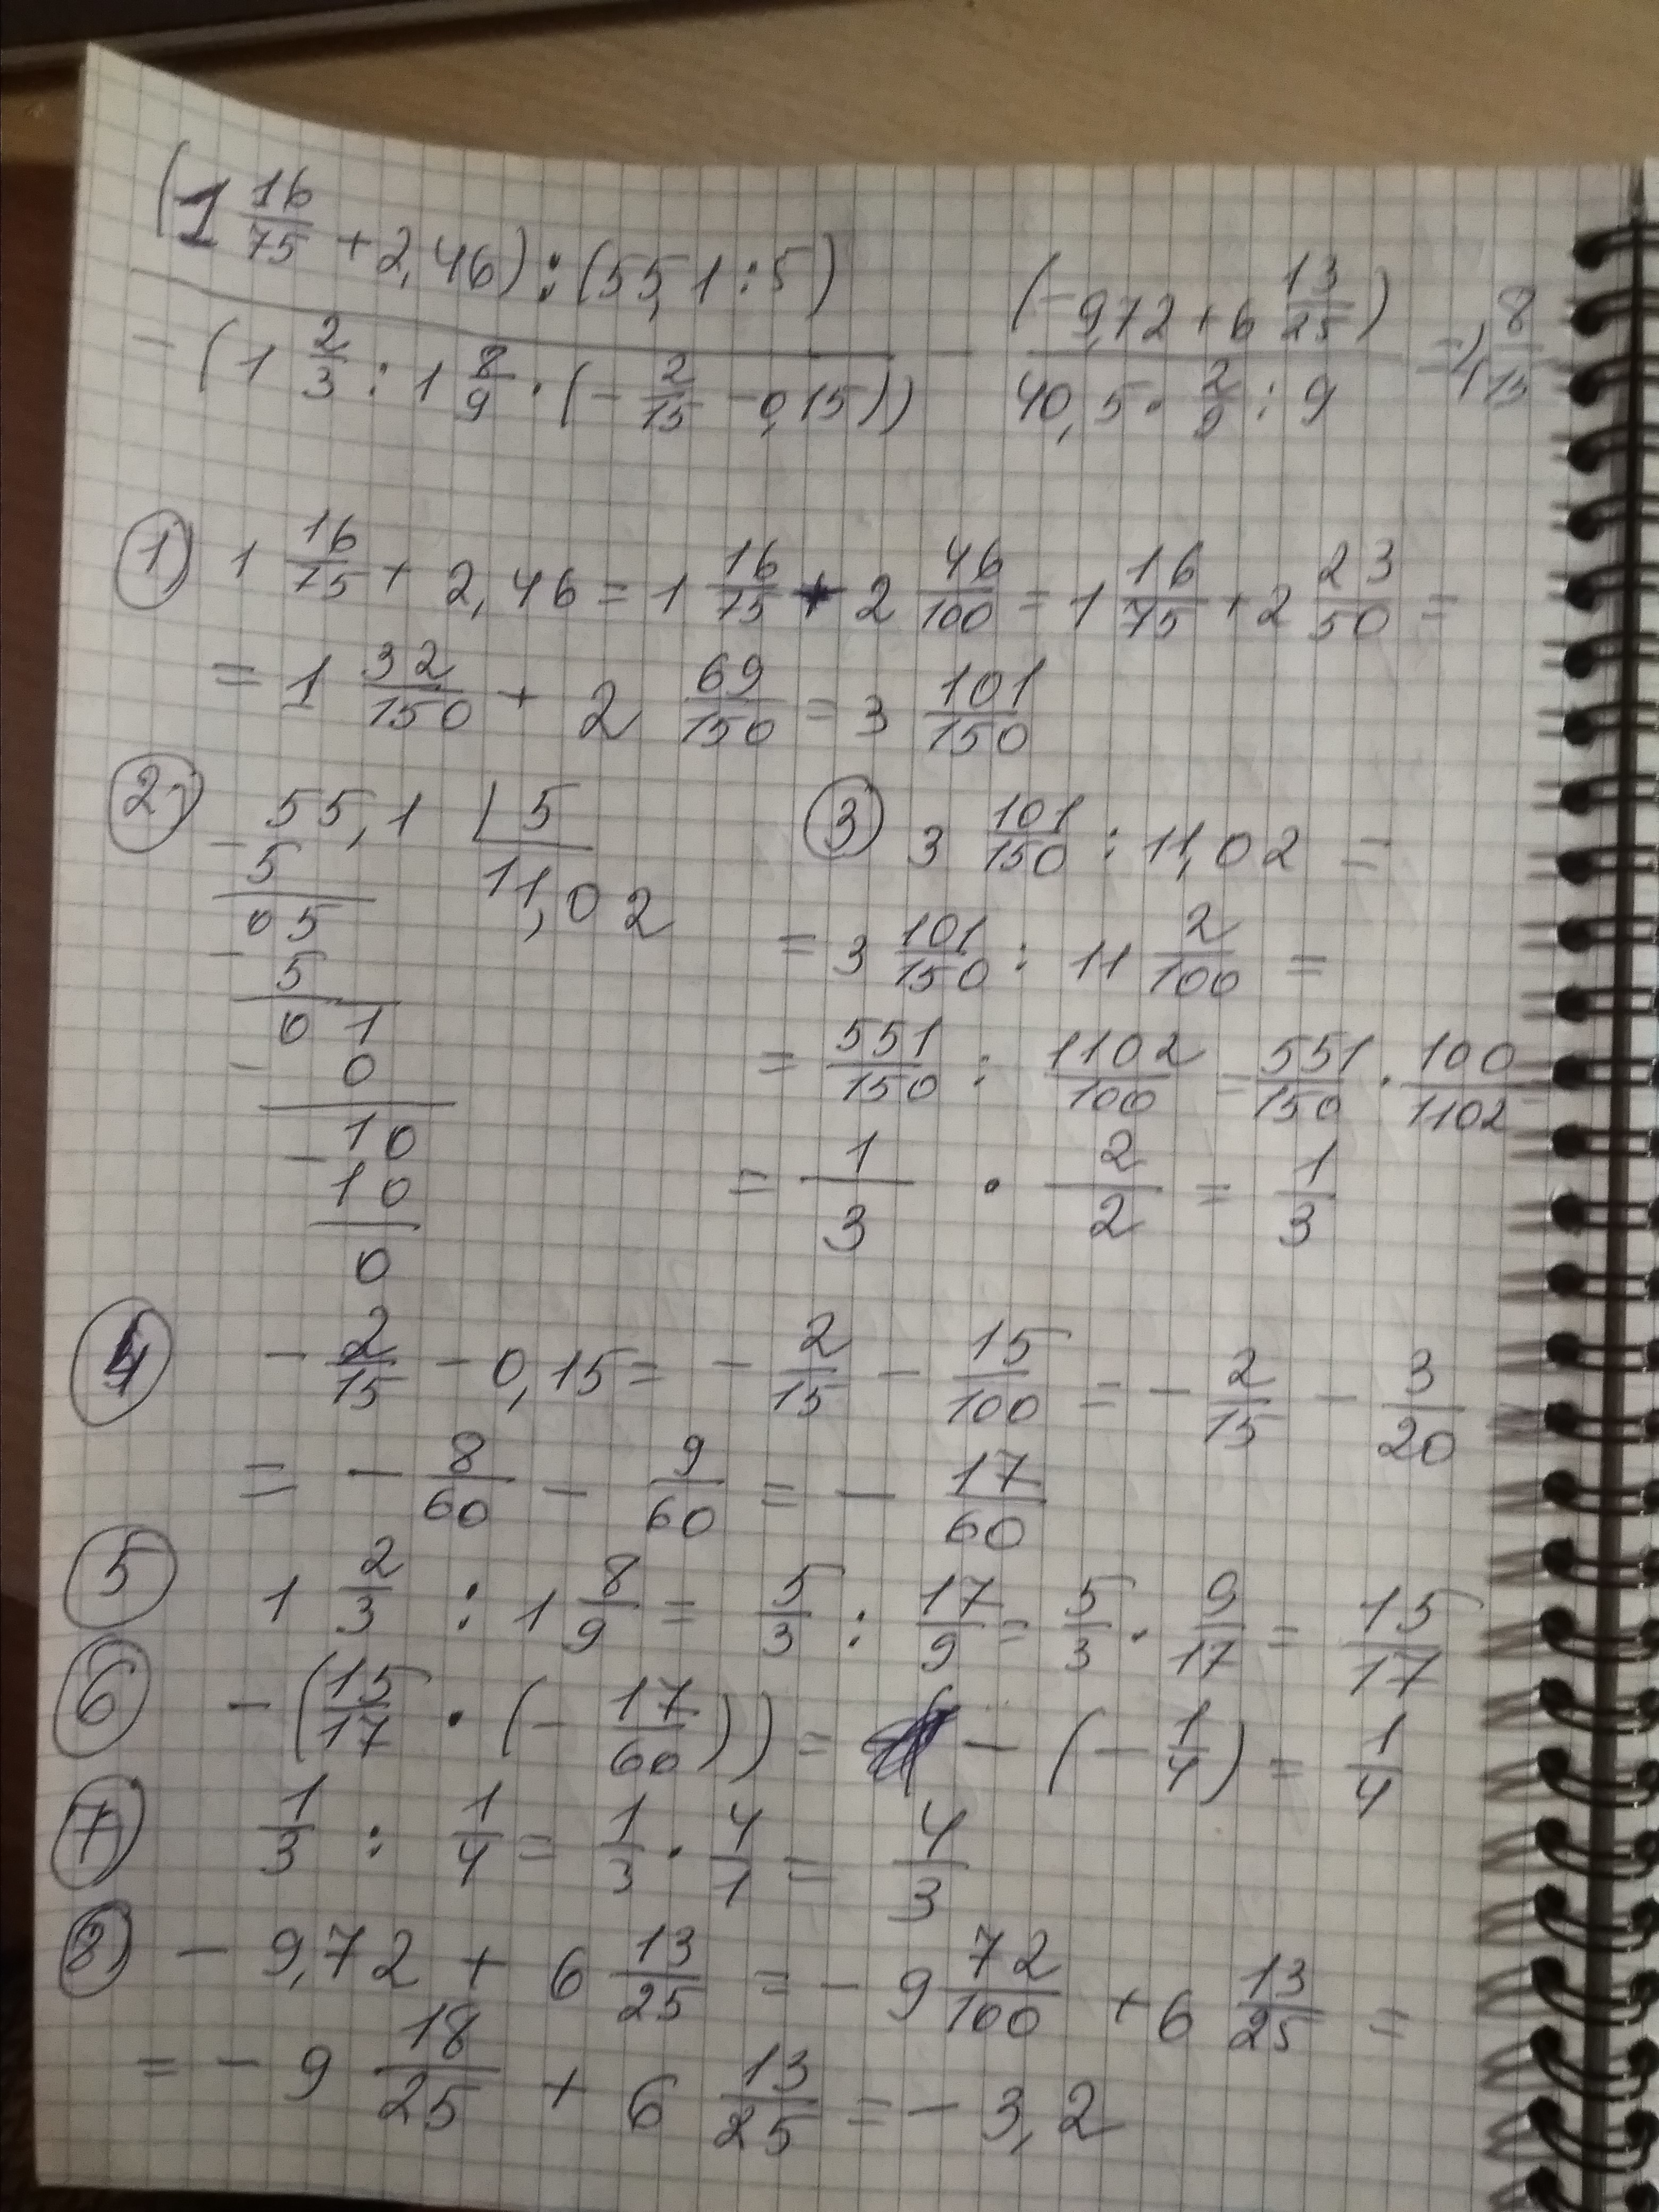 (1 16/75 + 2,46) : (55,1 : 5) / -(1 2/3 : 1 8/9 · (-2/15 - 0,15)) - (-9,72 + 6 13/25) / 40,5 · 2/9 : 9 =
1) 1 16/75 + 2,46 = 1 16/75 + 2 46/100 = 1 16/75 + 2 23/50 =
= 1 32/150 + 2 69/150 = 3 101/150
2) 55,1 | 5
- 5
11,02
05
- 5
01
- 0
10
- 10
0
3) 3 101/150 : 11,02 =
= 3 101/150 : 11 2/100 =
= 551/150 : 1102/100 = 551/150 · 100/1102
= 1/3 · 2/2 = 1/3
4 - 2/15 - 0,15 = - 2/15 - 15/100 = - 2/15 - 3/20
= - 8/60 - 9/60 = - 17/60
5 1 2/3 : 1 8/9 = 5/3 : 17/9 = 5/3 · 9/17 = 15/17
6 - (15/17 · (- 17/60)) = - (- 1/4) = 1/4
7 1/3 : 1/4 = 1/3 · 4/1 = 4/3
8) - 9,72 + 6 13/25 = - 9 72/100 + 6 13/25 =
= - 9 18/25 + 6 13/25 = - 3,2